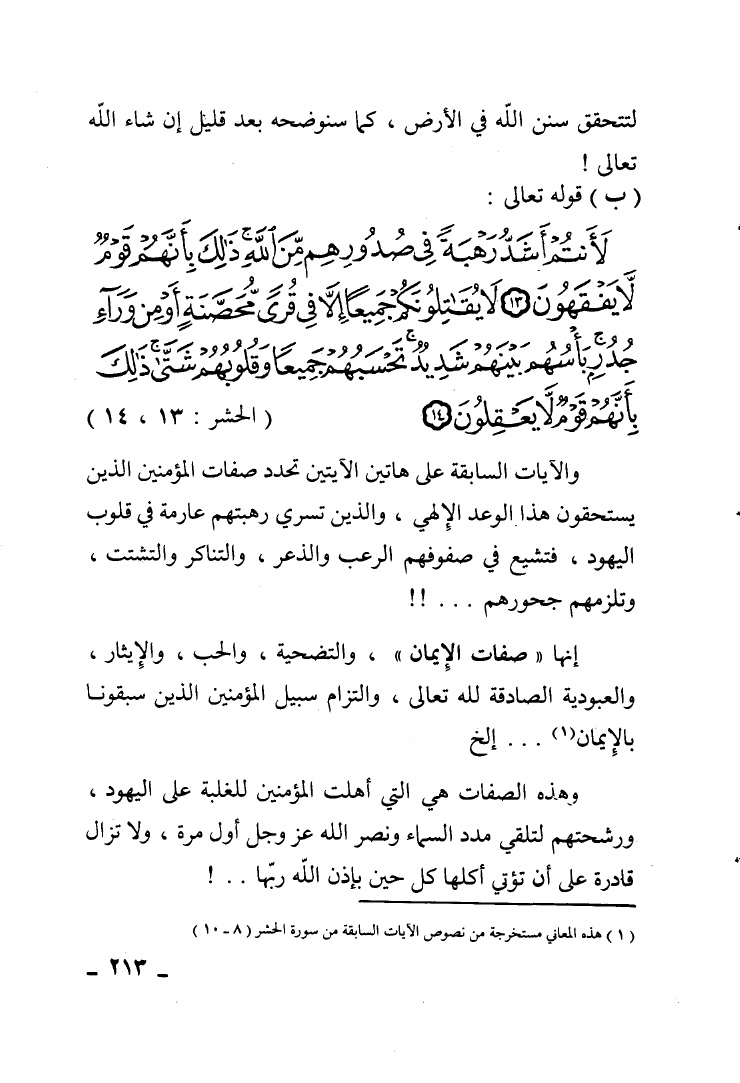 لتتحقق سنن اللّه في الأرض ، كما سنوضحه بعد قليل إن شاء اللّه
تعالى !
( ب ) قوله تعالى :
لَأَنتُمْ أَشَدُّ رَهْبَةً فِى صُدُورِهِم مِّنَ ٱللَّهِ ۚ ذَٰلِكَ بِأَنَّهُمْ قَوْمٌ
لَّا يَفْقَهُونَ ﴿١٣﴾ لَا يُقَـٰتِلُونَكُمْ جَمِيعًا إِلَّا فِى قُرًى مُّحَصَّنَةٍ أَوْ مِن وَرَآءِ
جُدُرٍۭ ۚ بَأْسُهُم بَيْنَهُمْ شَدِيدٌ ۚ تَحْسَبُهُمْ جَمِيعًا وَقُلُوبُهُمْ شَتَّىٰ ۚ ذَٰلِكَ
بِأَنَّهُمْ قَوْمٌ لَّا يَعْقِلُونَ ﴿١٤﴾ ( الحشر : ١٣ ، ١٤ )
والآيات السابقة على هاتين الآيتين تحدد صفات المؤمنين الذين
يستحقون هذا الوعد الإلهي ، والذين تسري رهبتهم عارمة في قلوب
اليهود ، فتشيع في صفوفهم الرعب والذعر ، والتناكر والتشتت ،
وتلزمهم جحورهم . . . !!
إنها « صفات الإيمان » ، والتضحية ، والحب ، والإيثار ،
والعبودية الصادقة لله تعالى ، والتزام سبيل المؤمنين الذين سبقونا
بالإيمان(١) . . . إلخ
وهذه الصفات هي التي أهلت المؤمنين للغلبة على اليهود ،
ورشحتهم لتلقي مدد السماء ونصر الله عز وجل أول مرة ، ولا تزال
قادرة على أن تؤتي أكلها كل حين بإذن اللّه ربّها . . !
( ١ ) هذه المعاني مستخرجة من نصوص الآيات السابقة من سورة الحشر ( ٨ ـ ١٠ )
ـ ٢١٣ ـ